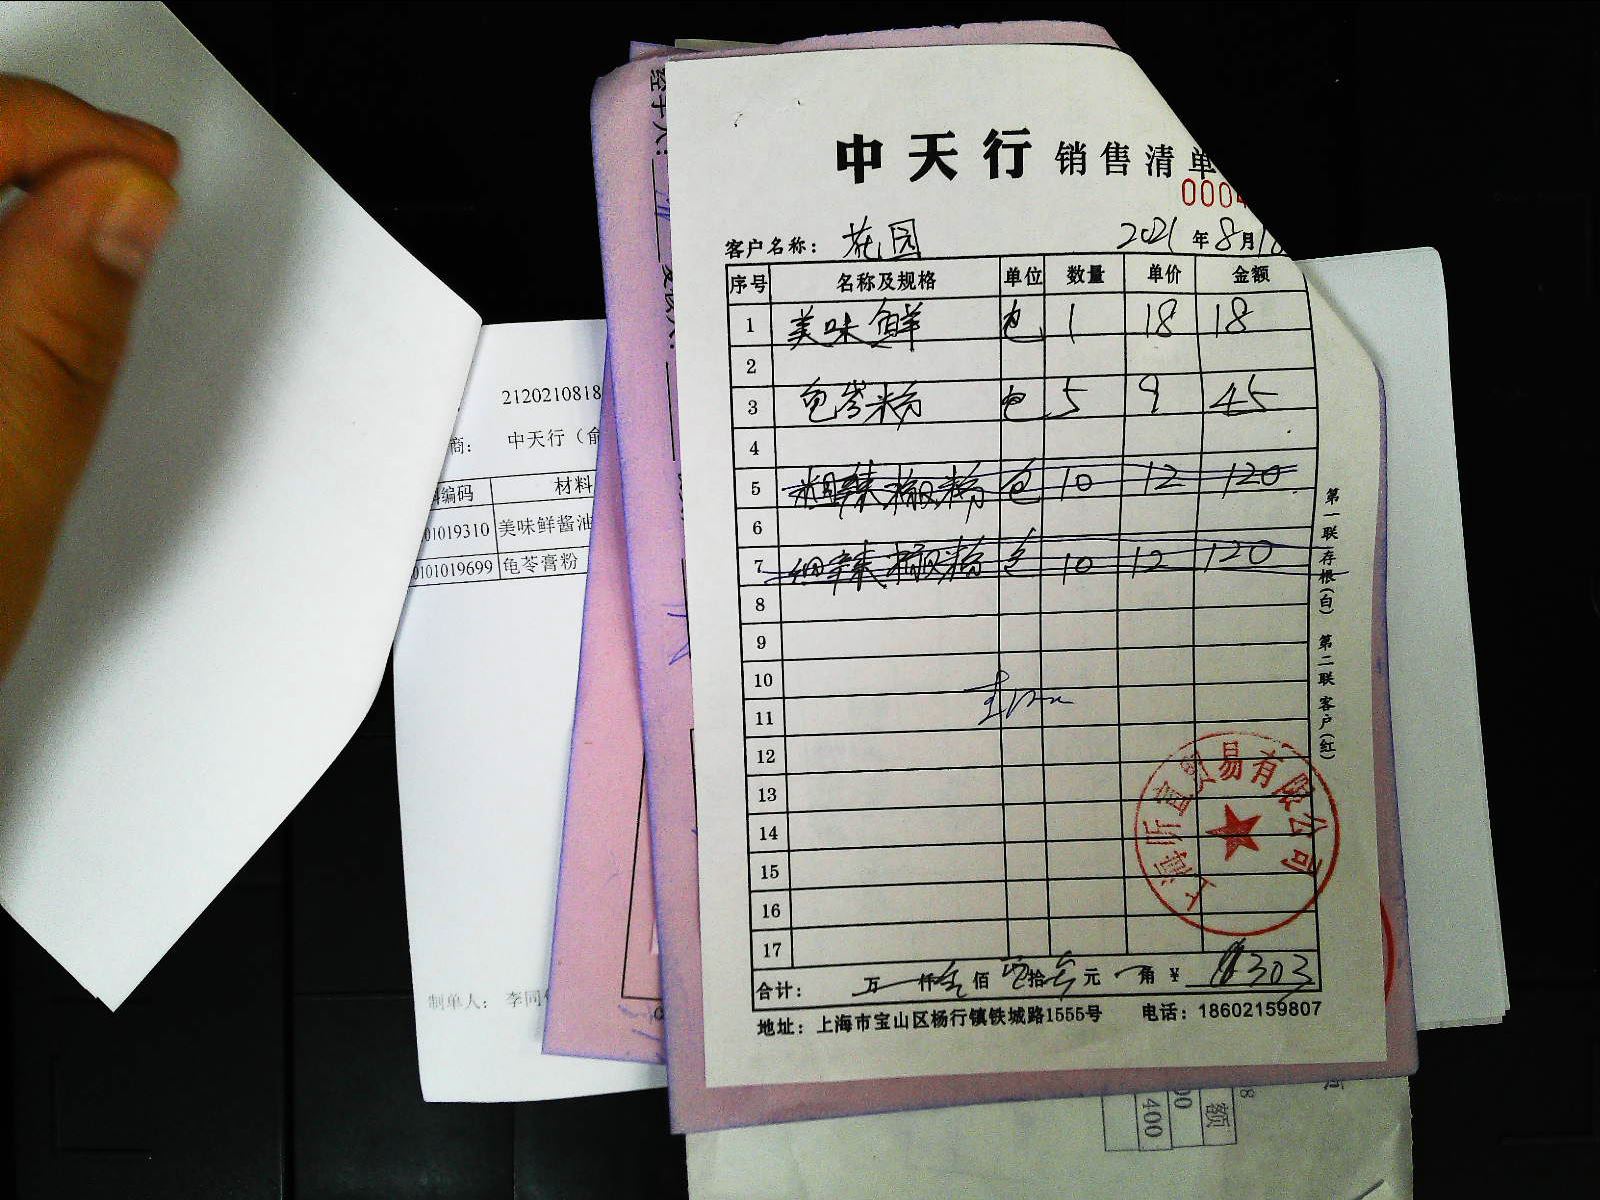 中天行 销售清单
0004
客户名称： 花园 2021 年 8 月 18
序号 名称及规格 单位 数量 单价 金额
1 美味鲜 包 1 18 18
2
3 龟苓粉 包 5 9 45
4
5 粗辣椒粉 包 10 12 120
6
7 细辣椒粉 包 10 12 120
8
9
10
11
12
13
14
15
16
17
合计： 万 仟 佰 拾 元 角 ¥ 303
地址：上海市宝山区杨行镇铁城路1555号 电话：18602159807
第一联 存根(白) 第二联 客户(红)
上海昕宜贸易有限公司
经手人：
2120210818
商： 中天行（俞
编码 材料
01019310 美味鲜酱油
0101019699 龟苓膏粉
制单人： 李同
额
400